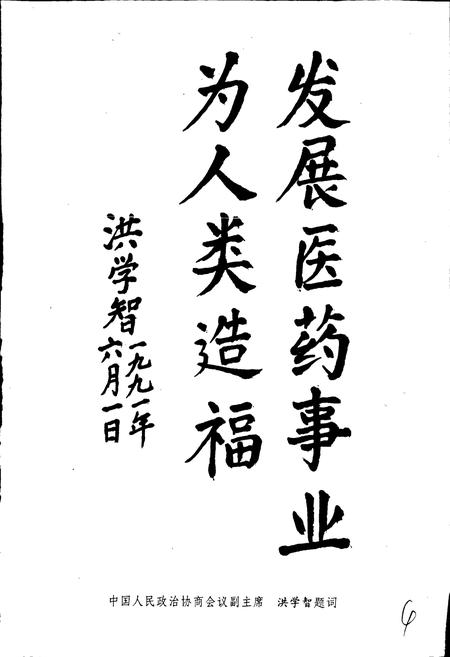 发展医药事业
为人类造福
洪学智
一九九一年
六月一日
中国人民政治协商会议副主席 洪学智题词
6